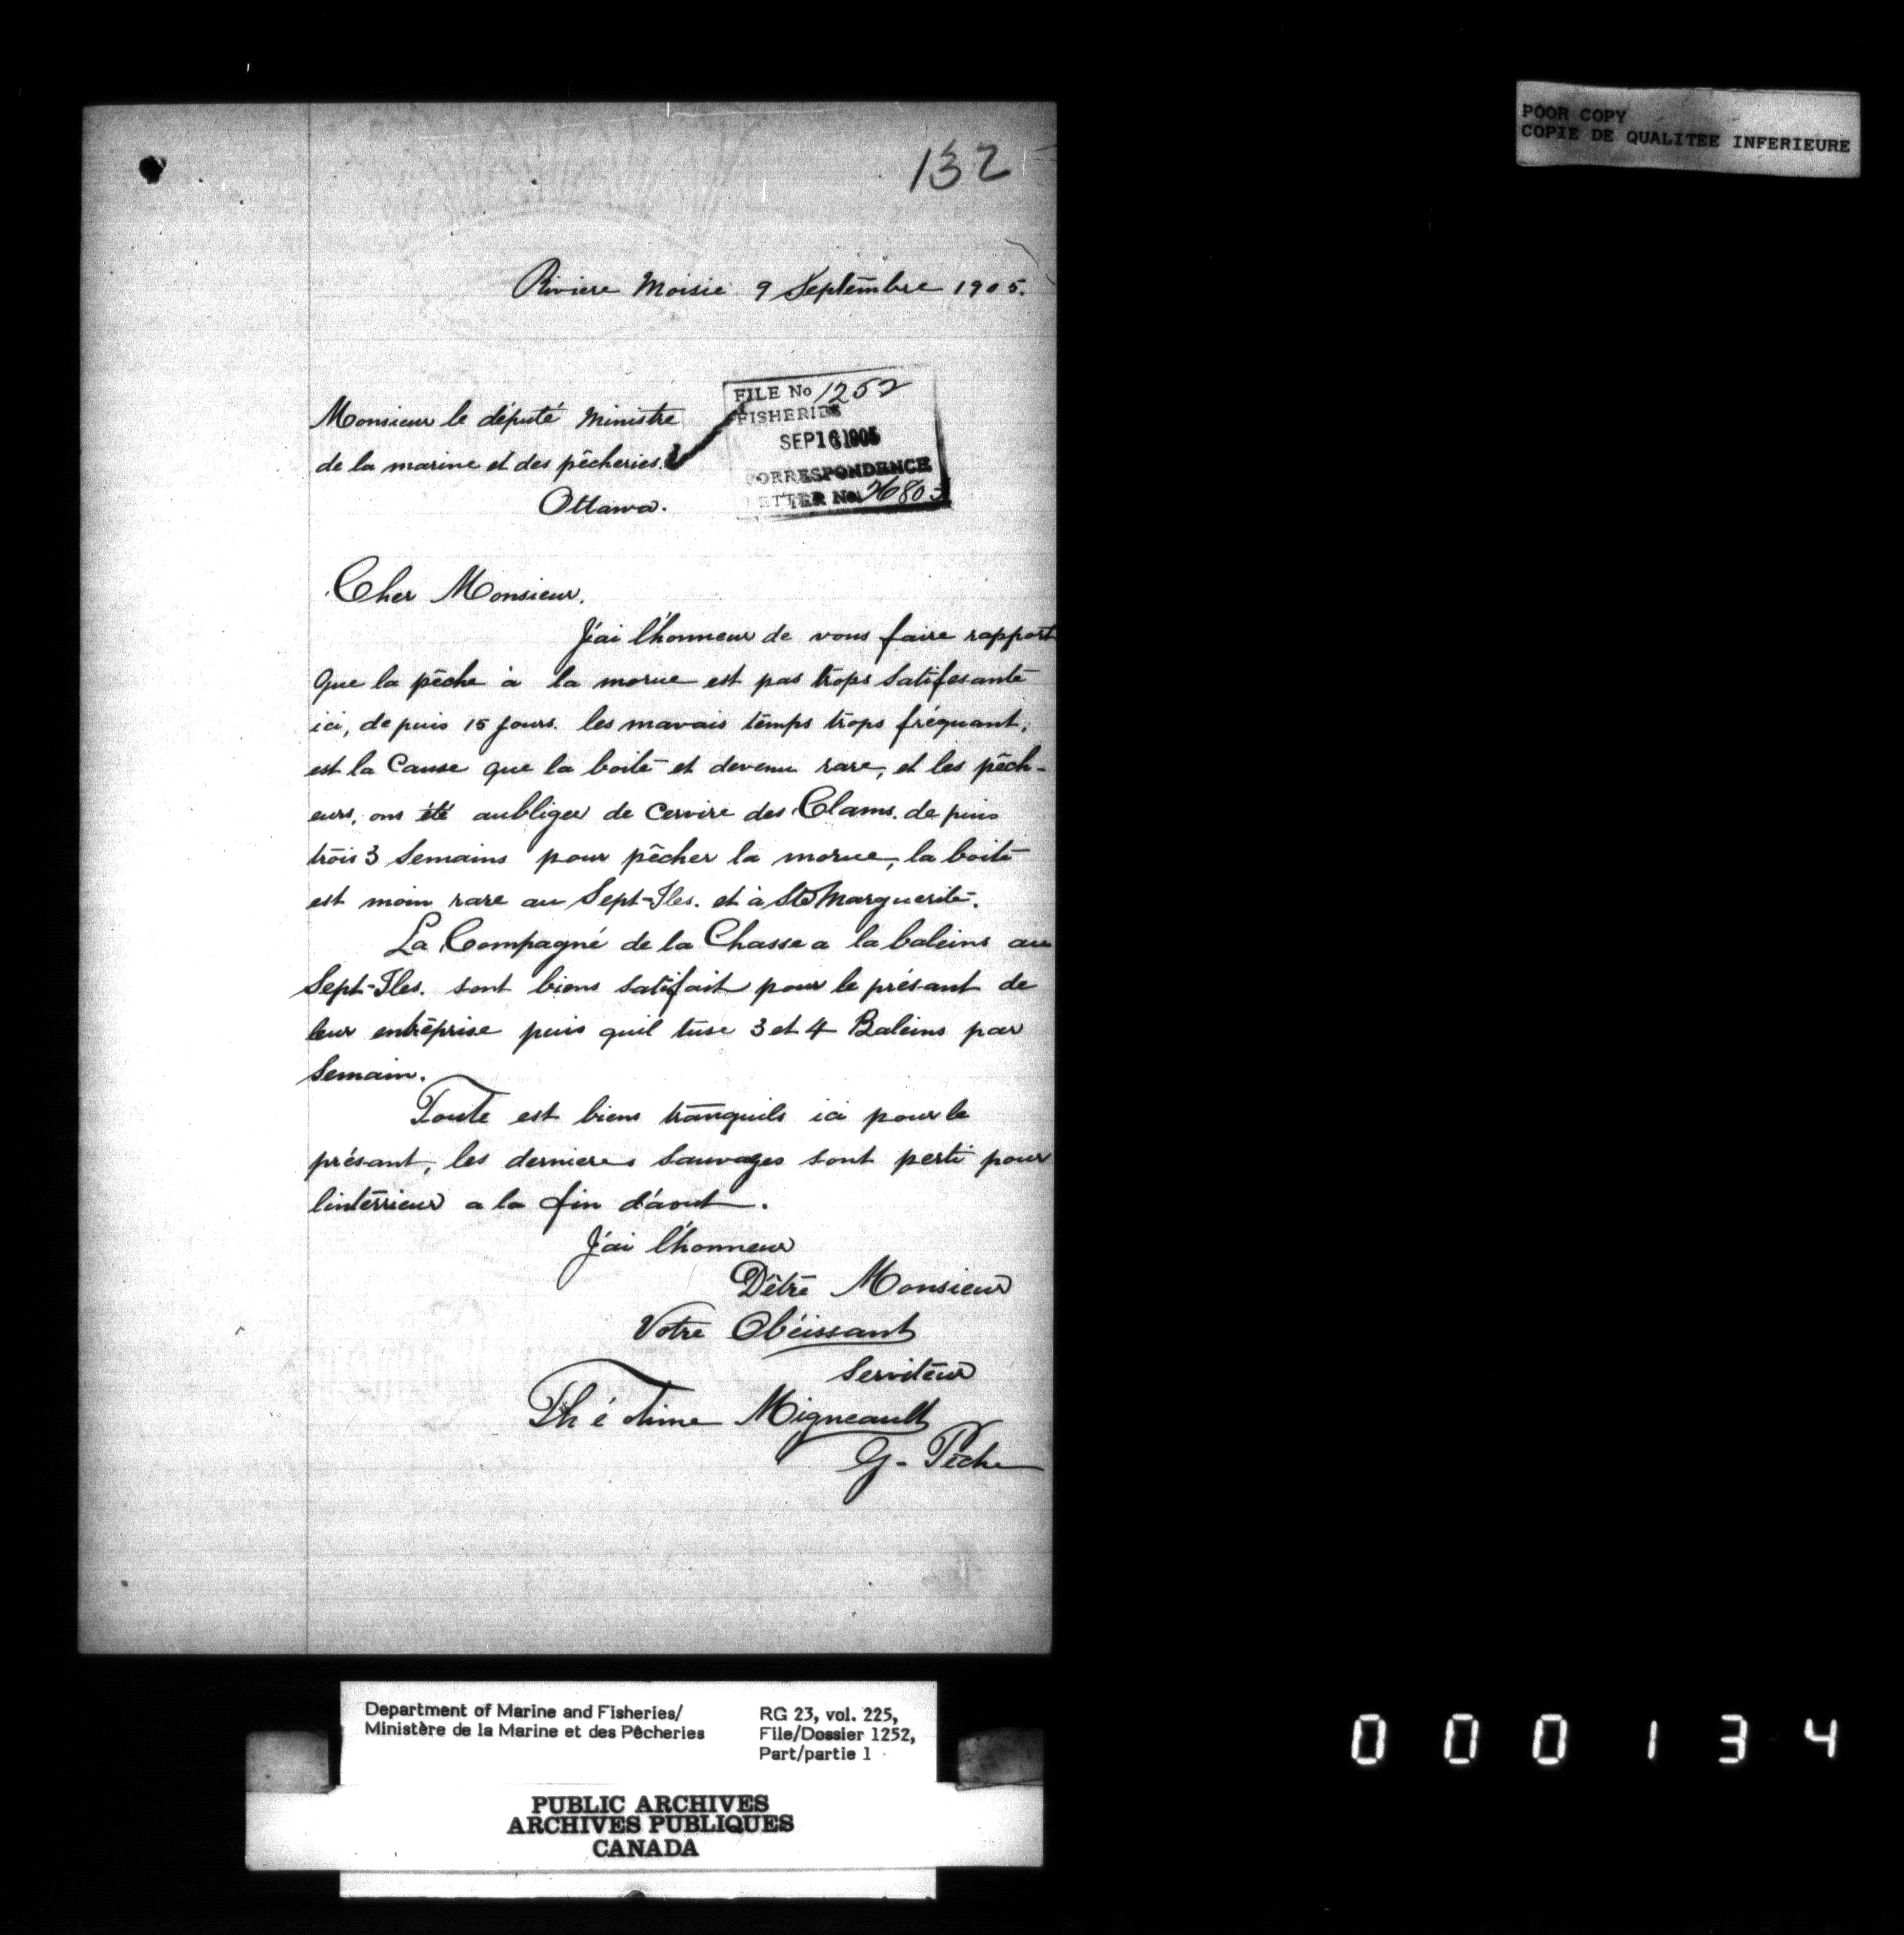 132
POOR COPY
COPIE DE QUALITEE INFERIEURE
Riviere Moisie 9 Septembre 1905.
FILE No 1252
FISHERIES
SEP 16 1905
CORRESPONDENCE
LETTER No.
Monsieur le député Ministre
de la marine et des pêcheries.
Ottawa.
Cher Monsieur.
J'ai l'honneur de vous faire rapport
que la pêche à la morue est pas trops satifesante
ici, de puis 15 jours. les mavais temps trops fréquant,
est la Cause que la boite et devenu rare, et les pêch-
eurs, ons été aubliger de cervire des Clams. de puis
trois 3 Semains pour pêcher la morue, la boite
est moin rare au Sept-Iles. et à Ste Marguerite.
La Compagné de la Chasse a la baleins au
Sept-Iles. sont biens satifait pour le présant de
leur entreprise puis quil tuse 3 et 4 Baleins par
Semain.
Toute est biens tranquils ici pour le
présant, les dernieres Sauvages sont perti pour
lintérrieur a la fin d'aout.
J'ai l'honneur
D'être Monsieur
Votre Obéissant
Serviteur
Théotime Migneault
G- Pêche
Department of Marine and Fisheries/
Ministère de la Marine et des Pêcheries
RG 23, vol. 225,
File/Dossier 1252,
Part/partie 1
PUBLIC ARCHIVES
ARCHIVES PUBLIQUES
CANADA
000134